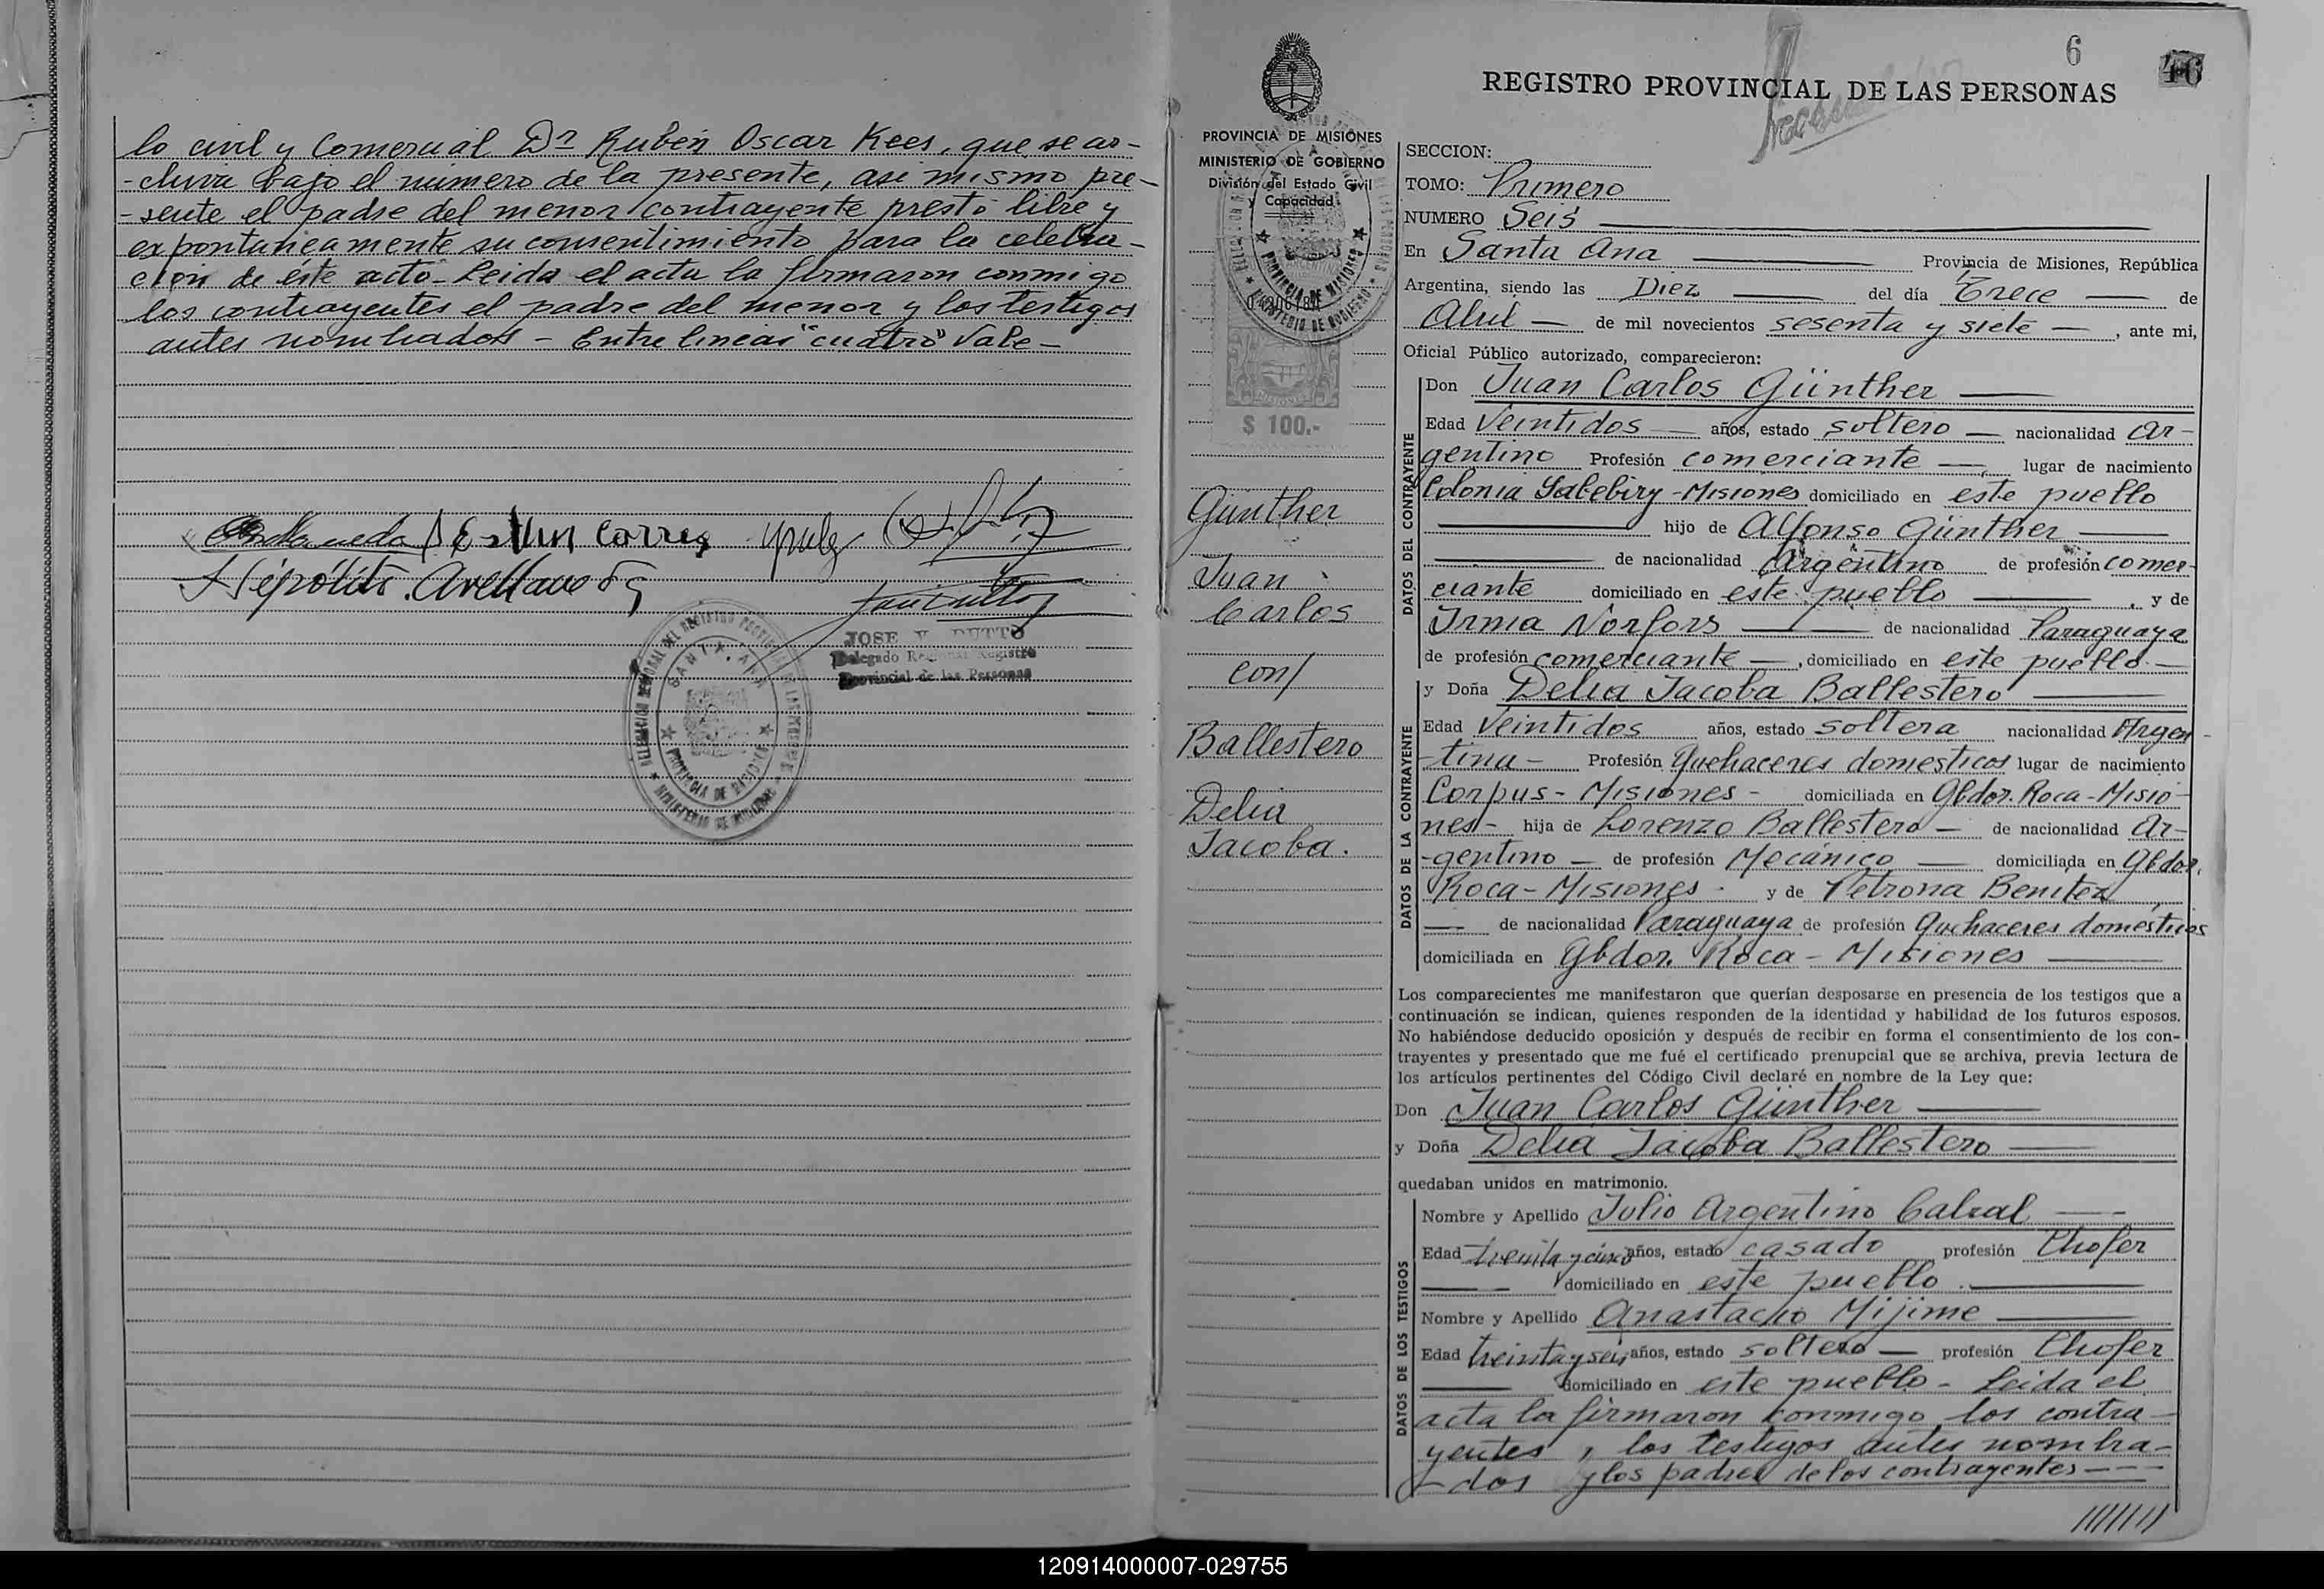 lo civil y Comercial Dr Rubén Oscar Kees, que se ar-
-chiva bajo el número de la presente, asi mismo pre-
-sente el padre del menor contrayente prestó libre y
expontaneamente su consentimiento para la celebra-
ción de éste acto - Leida el acta la firmaron conmigo
los contrayentes el padre del menor y los testigos
antes nombrados - Entre lineas "cuatro" Vale -
Hipólito Avellaneda
JOSE V. DUTTO
Delegado Regional Registro
Provincial de las Personas
DELEGACION REGIONAL DEL REGISTRO PROVINCIAL DE LAS PERSONAS
SANTA ANA
PROVINCIA DE MISIONES
MINISTERIO DE GOBIERNO
6
46
REGISTRO PROVINCIAL DE LAS PERSONAS
PROVINCIA DE MISIONES
MINISTERIO DE GOBIERNO
División del Estado Civil
y Capacidad
PROVINCIA DE MISIONES
MINISTERIO DE GOBIERNO
MISIONES
$ 100.-
Günther
Juan
Carlos
con/
Ballestero
Delia
Jacoba.
SECCION:
TOMO: Primero
NUMERO Seis
En Santa Ana Provincia de Misiones, República
Argentina, siendo las Diez del día Trece de
Abril de mil novecientos sesenta y siete, ante mi,
Oficial Público autorizado, comparecieron:
DATOS DEL CONTRAYENTE
Don Juan Carlos Günther
Edad Veintidos años, estado soltero nacionalidad Ar-
gentino Profesión comerciante lugar de nacimiento
Colonia Yabebiry - Misiones domiciliado en este pueblo
hijo de Alfonso Günther
de nacionalidad Argentino de profesión comer-
ciante domiciliado en este pueblo, y de
Irma Norfors de nacionalidad Paraguaya
de profesión comerciante, domiciliado en este pueblo.
DATOS DE LA CONTRAYENTE
y Doña Delia Jacoba Ballestero
Edad Veintidos años, estado soltera nacionalidad Argen-
tina - Profesión Quehaceres domesticos lugar de nacimiento
Corpus - Misiones - domiciliada en Gbdor. Roca - Misio-
nes - hija de Lorenzo Ballestero de nacionalidad Ar-
-gentino de profesión Mecánico domiciliada en Gbdor.
Roca - Misiones - y de Petrona Benitez
de nacionalidad Paraguaya de profesión Quehaceres domésticos
domiciliada en Gbdor. Roca - Misiones
Los comparecientes me manifestaron que querían desposarse en presencia de los testigos que a
continuación se indican, quienes responden de la identidad y habilidad de los futuros esposos.
No habiéndose deducido oposición y después de recibir en forma el consentimiento de los con-
trayentes y presentado que me fué el certificado prenupcial que se archiva, previa lectura de
los artículos pertinentes del Código Civil declaré en nombre de la Ley que:
Don Juan Carlos Günther
y Doña Delia Jacoba Ballestero
quedaban unidos en matrimonio.
DATOS DE LOS TESTIGOS
Nombre y Apellido Julio Argentino Cabral
Edad treinta y cinco años, estado casado profesión Chofer
domiciliado en este pueblo
Nombre y Apellido Anastacio Mijime
Edad treinta y seis años, estado soltero profesión Chofer
domiciliado en este pueblo - Leida el
acta la firmaron conmigo los contra-
yentes, los testigos antes nombra-
-dos y los padres de los contrayentes
120914000007-029755